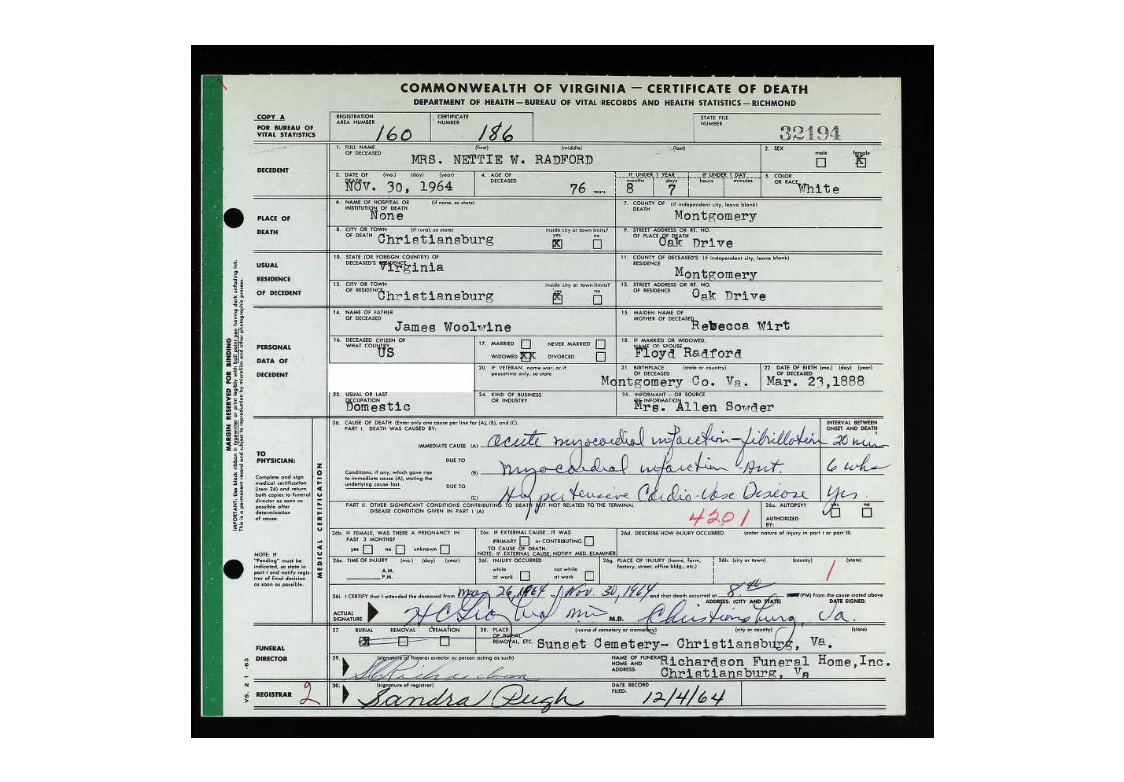 COMMONWEALTH OF VIRGINIA — CERTIFICATE OF DEATH
DEPARTMENT OF HEALTH—BUREAU OF VITAL RECORDS AND HEALTH STATISTICS—RICHMOND
COPY A
FOR BUREAU OF
VITAL STATISTICS
REGISTRATION
AREA NUMBER 160
CERTIFICATE
NUMBER 186
STATE FILE
NUMBER 32194
DECEDENT
1. FULL NAME
OF DECEASED (first) (middle) (last)
MRS. NETTIE W. RADFORD
2. SEX male female X
3. DATE OF DEATH (mo.) (day) (year)
NOV. 30, 1964
4. AGE OF
DECEASED 76 years
IF UNDER 1 YEAR months days
8 7
IF UNDER 1 DAY hours minutes
5. COLOR
OR RACE White
PLACE OF
DEATH
6. NAME OF HOSPITAL OR (if none, so state)
INSTITUTION OF DEATH
None
7. COUNTY OF (if independent city, leave blank)
DEATH
Montgomery
8. CITY OR TOWN (if rural, so state)
OF DEATH Christiansburg
inside city or town limits?
yes X no
9. STREET ADDRESS OR RT. NO.
OF PLACE OF DEATH
Oak Drive
USUAL
RESIDENCE
OF DECEDENT
10. STATE (OR FOREIGN COUNTRY) OF
DECEASED'S RESIDENCE
Virginia
11. COUNTY OF DECEASED'S (if independent city, leave blank)
RESIDENCE
Montgomery
12. CITY OR TOWN
OF RESIDENCE Christiansburg
inside city or town limits?
yes X no
13. STREET ADDRESS OR RT. NO.
OF RESIDENCE Oak Drive
PERSONAL
DATA OF
DECEDENT
14. NAME OF FATHER
OF DECEASED
James Woolwine
15. MAIDEN NAME OF
MOTHER OF DECEASED
Rebecca Wirt
16. DECEASED CITIZEN OF
WHAT COUNTRY
US
17. MARRIED NEVER MARRIED
WIDOWED XX DIVORCED
18. IF MARRIED OR WIDOWED,
NAME OF SPOUSE
Floyd Radford
20. IF VETERAN, name war, or if
peacetime only, so state
21. BIRTHPLACE (state or country)
OF DECEASED
Montgomery Co. Va.
22. DATE OF BIRTH (mo.) (day) (year)
OF DECEASED
Mar. 23,1888
23. USUAL OR LAST
OCCUPATION
Domestic
24. KIND OF BUSINESS
OR INDUSTRY
25. INFORMANT - OR SOURCE
OF INFORMATION
Mrs. Allen Sowder
MARGIN RESERVED FOR BINDING
TO
PHYSICIAN:
Complete and sign
medical certification
(item 26) and return
both copies to funeral
director as soon as
possible after
determination
of cause.
NOTE: If
"Pending" must be
indicated, so state in
part I and notify regis-
trar of final decision
as soon as possible.
MEDICAL CERTIFICATION
26. CAUSE OF DEATH (Enter only one cause per line for (A), (B), and (C).
PART I. DEATH WAS CAUSED BY:
INTERVAL BETWEEN
ONSET AND DEATH
IMMEDIATE CAUSE (A) acute myocardial infarction-fibrillation 20 min
DUE TO
Conditions, if any, which gave rise
to immediate cause (A), stating the
underlying cause last.
(B) myocardial infarction Ant. 6 wks
DUE TO
(C) Hypertensive Cardio-Vasc Disease yrs.
PART II. OTHER SIGNIFICANT CONDITIONS CONTRIBUTING TO DEATH BUT NOT RELATED TO THE TERMINAL
DISEASE CONDITION GIVEN IN PART I (A)
4201
26a. AUTOPSY? yes no
AUTHORIZED
BY:
26b. IF FEMALE, WAS THERE A PREGNANCY IN
PAST 3 MONTHS?
yes no unknown
26c. IF EXTERNAL CAUSE, IT WAS
PRIMARY or CONTRIBUTING
TO CAUSE OF DEATH.
NOTE: IF EXTERNAL CAUSE, NOTIFY MED. EXAMINER
26d. DESCRIBE HOW INJURY OCCURRED. (enter nature of injury in part I or part II)
26e. TIME OF INJURY (mo.) (day) (year)
A.M.
P.M.
26f. INJURY OCCURRED
while at work not while at work
26g. PLACE OF INJURY (home, farm,
factory, street, office bldg., etc.)
26h. (city or town) (county) (state)
1
26i. I CERTIFY that I attended the deceased from May 26, 1964 to Nov 30, 1964 and that death occurred at (PM) from the cause stated above
ACTUAL
SIGNATURE M.D.
ADDRESS: (CITY AND STATE) DATE SIGNED:
Christiansburg, Va.
FUNERAL
DIRECTOR
27. BURIAL REMOVAL CREMATION
X
28. PLACE
OF BURIAL
REMOVAL, ETC. (name of cemetery or crematory) (city or county) (state)
Sunset Cemetery- Christiansburg, Va.
29. (signature of funeral director or person acting as such)
NAME OF FUNERAL
HOME AND
ADDRESS:
Richardson Funeral Home, Inc.
Christiansburg, Va
REGISTRAR 2
30. (signature of registrar)
Sandra Pugh
DATE RECORD
FILED: 12/4/64
VS. 2 1-63